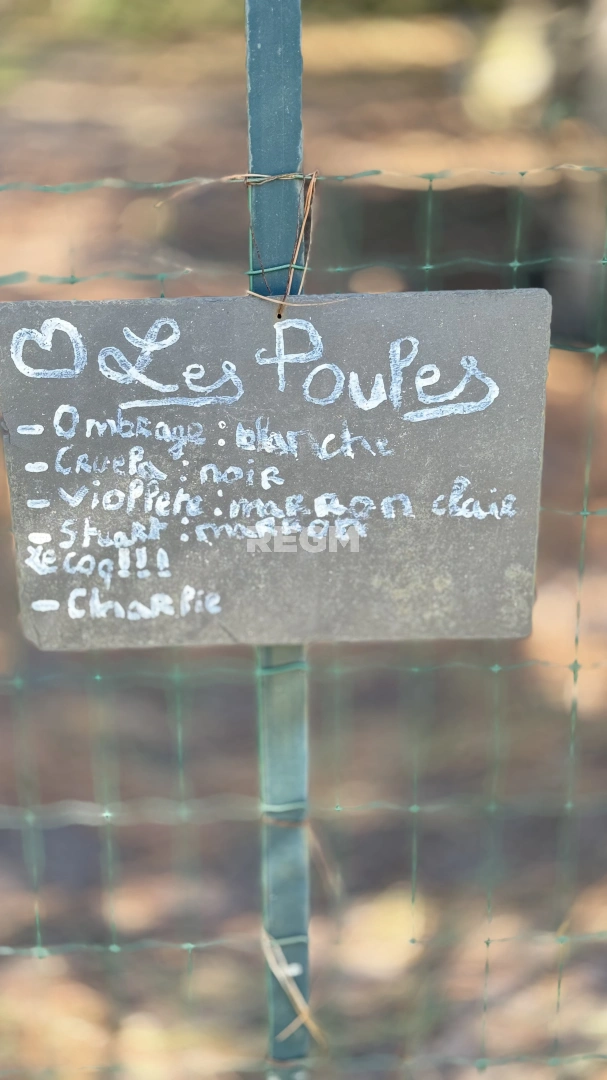 Les Poupes
- Ombrage : blanche
- Cruela : noir
- Violete : marron clair
- Stuart : marron
Le coq!!!
- Charlie
REGM